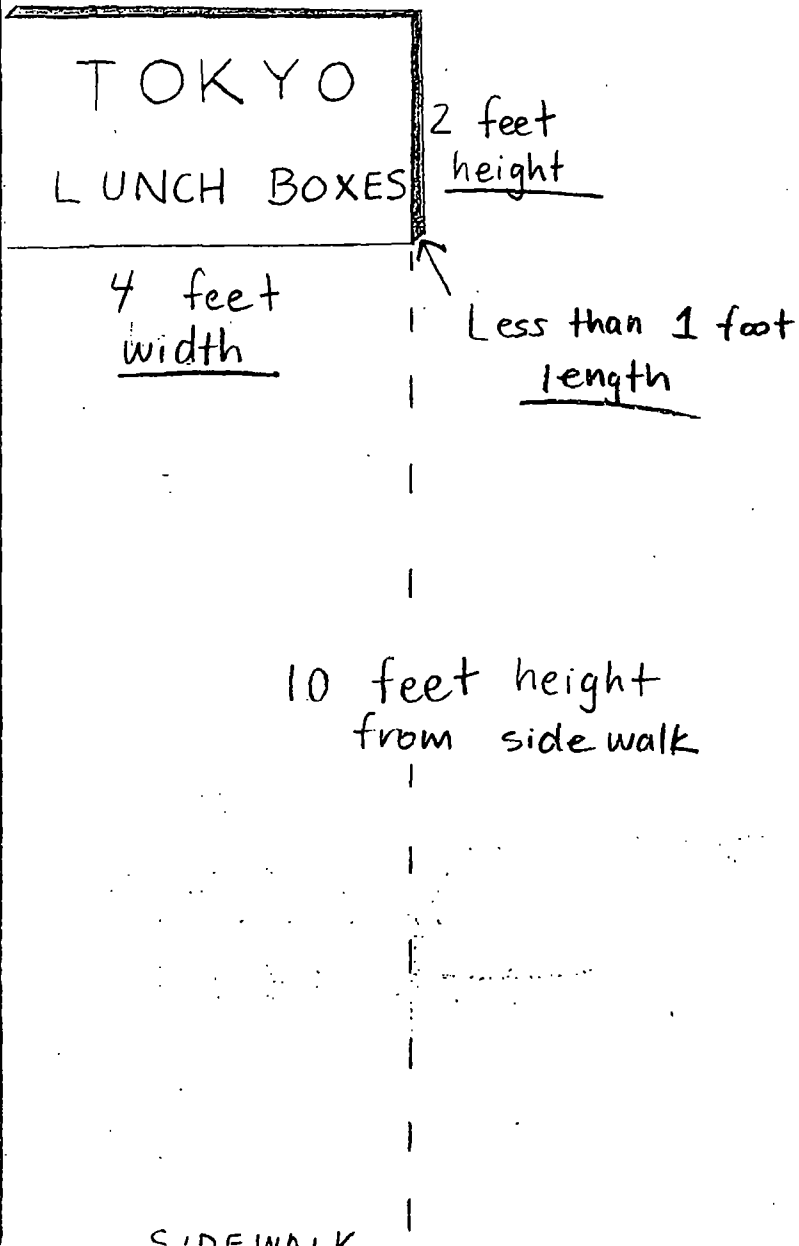 TOKYO
LUNCH BOXES
2 feet
height
4 feet
width
Less than 1 foot
length
10 feet height
from sidewalk
SIDEWALK